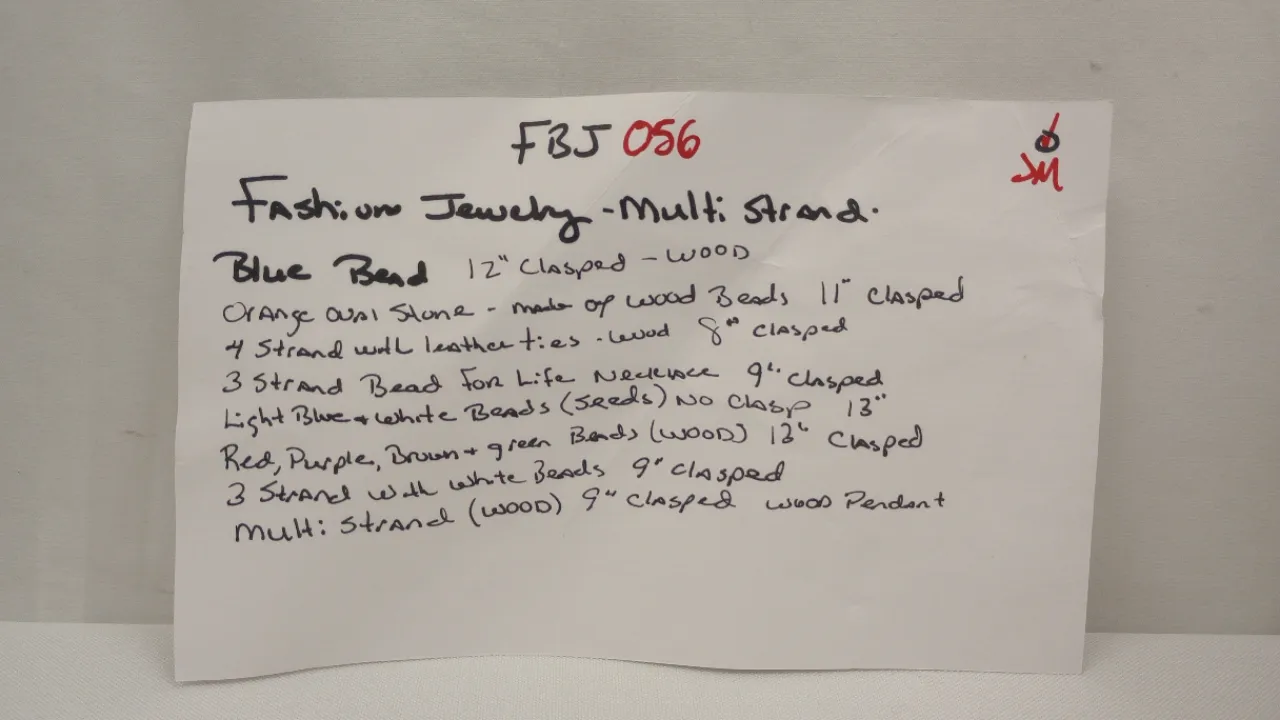 FBJ 056
JM
Fashion Jewelry - Multi Strand.
Blue Bead 12" Clasped - WOOD
Orange oval Stone - made of wood Beads 11" Clasped
4 Strand with leather ties - wood 8" Clasped
3 Strand Bead For Life Necklace 9" Clasped
Light Blue + White Beads (Seeds) No Clasp 13"
Red, Purple, Brown + green Beads (WOOD) 13" Clasped
3 Strand with white Beads 9" Clasped
Multi Strand (WOOD) 9" Clasped wood Pendant